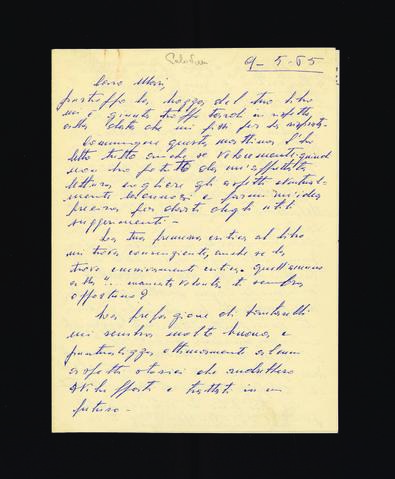 9-5-65
Caro Mari,
purtroppo la bozza del tuo libro
mi è giunta troppo tardi in rispetto
alla data che mi fissi per la risposta.
Comunque questa mattina l'ho
letto tutto anche se velocemente quindi
non ho potuto da un'affrettata
lettura cogliere gli aspetti
e farmi un'idea
precisa per darti degli utili
suggerimenti -
La tua premessa critica al libro
mi trova consenziente, anche se la
trovo critica. Quell'accenno
alla
opportuno?
La prefazione di
mi sembra molto buona e
puntualizza ottimamente alcuni
aspetti storici che andrebbero
sviluppati e trattati in un
futuro -